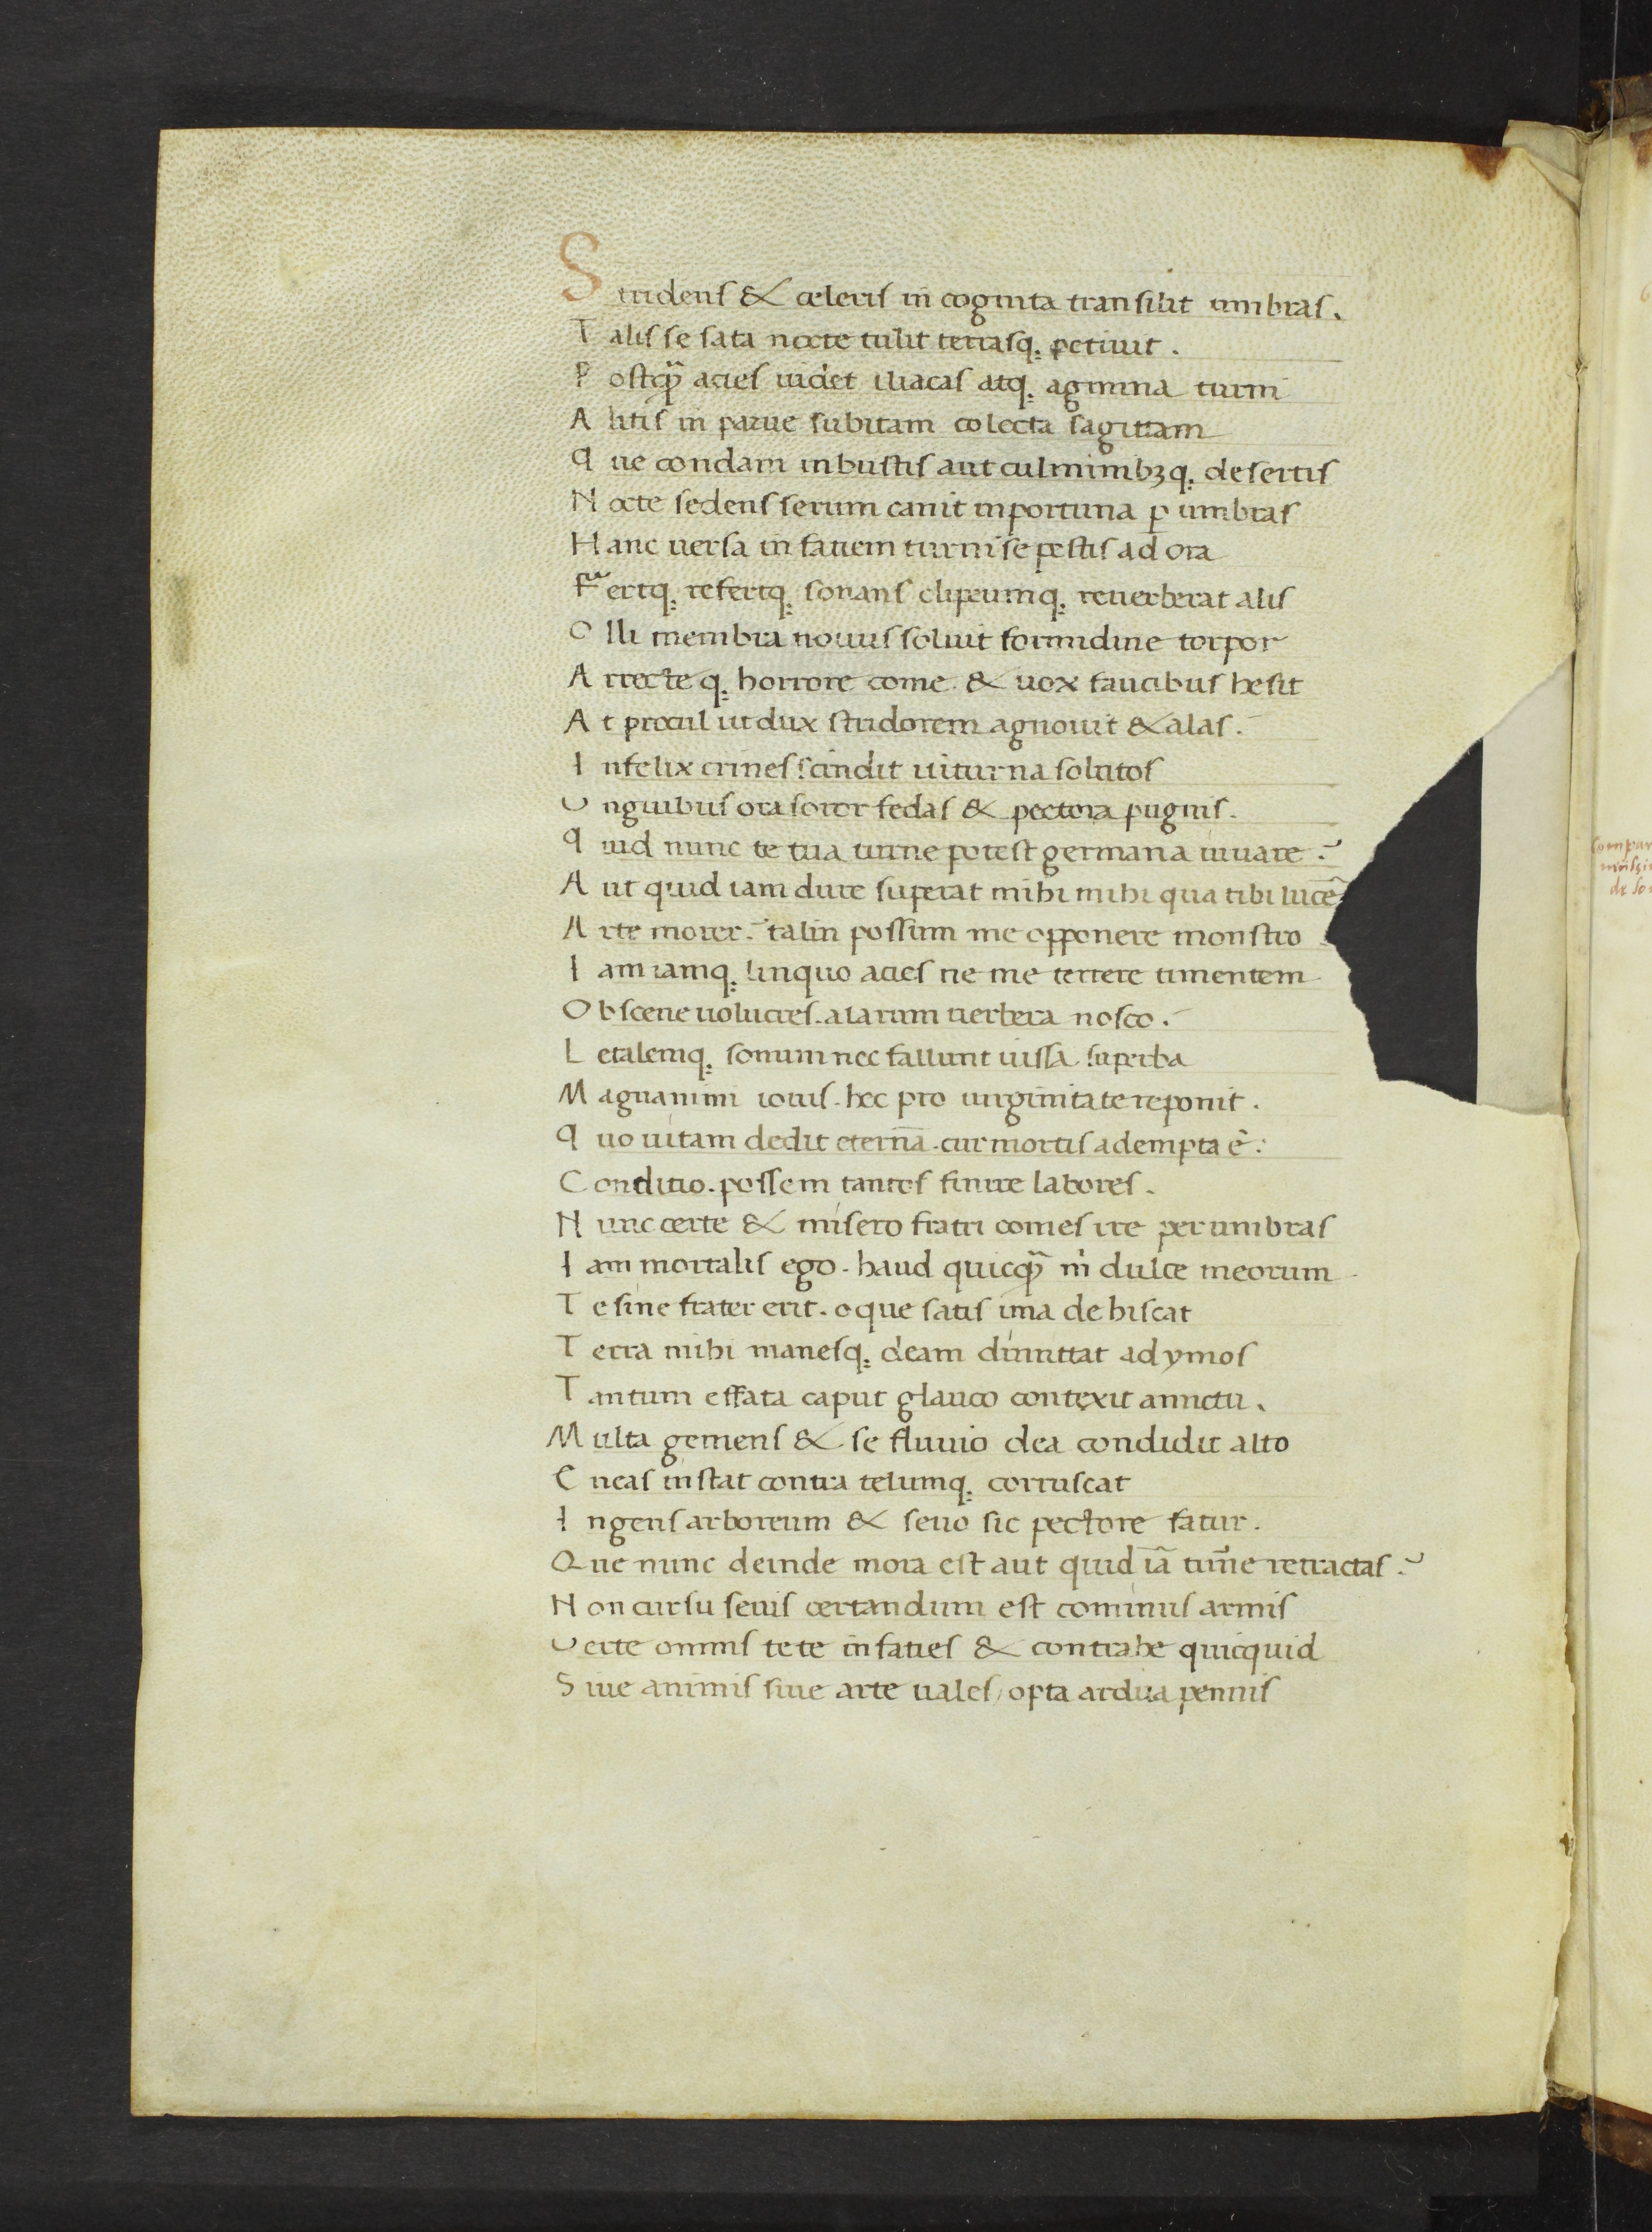 S tridens & celeris in cognita transilit umbras.
T alis se sata nocte tulit terrasq; petiuit.
P ostq̃ acies uidet iliacas atq; agmina turni
A litis in parue subitam colecta sagittam
Q ue condam in bustis aut culminibꝫq; desertis
N octe sedens serum canit inportuna ꝑ umbras
H anc uersa in fatiem turni se pestis ad ora
F ertq; refertq; sonans clipeumq; reuerberat alis
O lli membra nouus soluit formidine torpor
A rrecte q; horrore come & uox faucibus hesit
A t procul ut dux stridorem agnouit & alas.
I nfelix crines scindit uiturna solutos
U nguibus ora soror fedas & pectora pugnis.
Q uid nunc te tua turne potest germana iuuare?
A ut quid iam dure superat mihi mihi qua tibi lucẽ
A rte morer. talin possum me opponere monstro
I am iamq; linquo acies ne me terrere timentem
O bscene uolucres. alarum uerbera nosco.
L etalemq; sonum nec fallunt iussa superba
M agnanimi iouis. hec pro uirginitate reponit.
Q uo uitam dedit eternã. cur mortis adempta ẽ:
C onditio. possem tantos finire labores.
N unc certe & misero fratri comes ire per umbras
I am mortalis ego. haud quicq̃ m̃ dulce meorum
T e sine frater erit. o que satis ima dehiscat
T erra mihi manesq; deam dimittat ad ymos
T antum effata caput glauco contexit amictu.
M ulta gemens & se fluuio dea condidit alto
E neas instat contra telumq; corruscat
I ngens arboreum & seuo sic pectore fatur.
Q ue nunc deinde mora est aut quid iã turñe retractas?
N on cursu seuis certandum est cominus armis
U erte omnis te te in faties & contrahe quicquid
S iue animis siue arte uales / opta ardua pennis